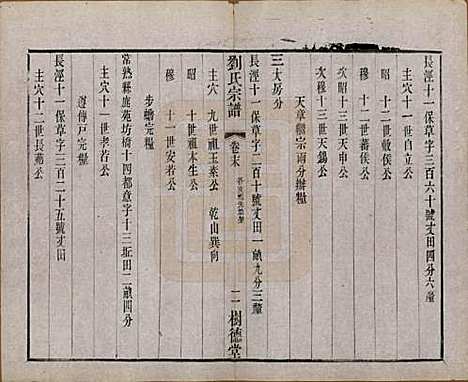 長涇十一保草字三百六十號丈田四分六釐
主穴十一世自立公
昭 十二世敬侯公
穆 十二世蕃侯公
次昭十三世天申公
次穆十三世天錫公
天章蘭宗兩分辦糧
三大房分
長涇十一保草字二百十號丈田一畝九分三釐
劉氏宗譜
卷末
二
樹德堂
主穴 九世祖玉素公 乾山巽向
昭 十世祖本生公
穆 十一世安若公
步蟾完糧
常熟縣鹿苑坊橋十四都意字十三坵田二畝四分
主穴十一世孝若公
遵傳戶完糧
長涇十一保草字三百二十五號丈田
主穴十二世長苑公